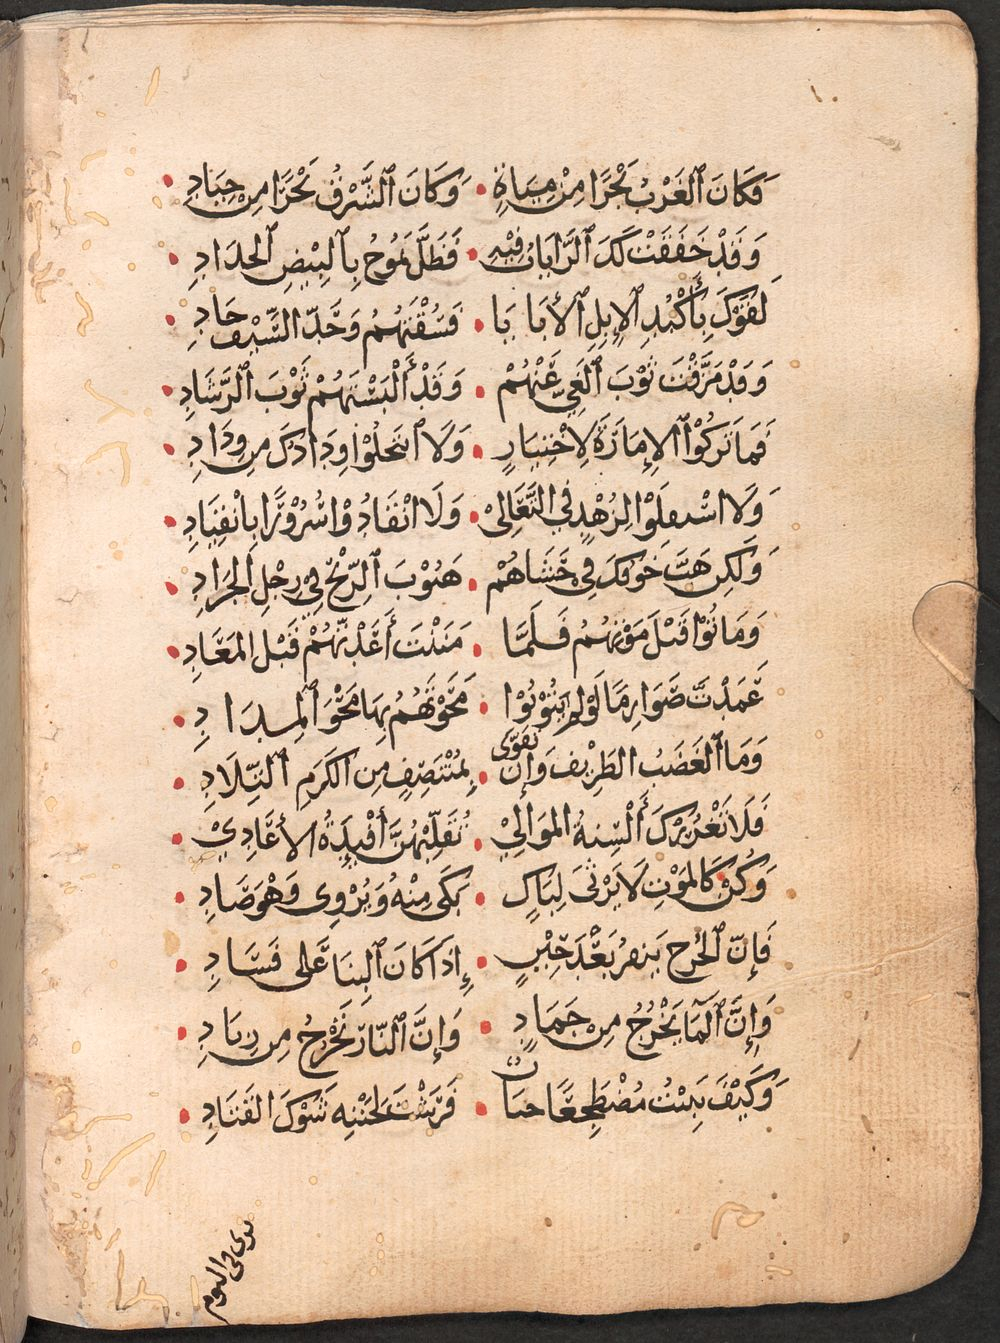 فَكَانَ ٱلغَرْبُ بَحْرًا مِنْ مِيَاهٍ • وَكَانَ ٱلشَّرْقُ بَحْرًا مِنْ جِيَادِ •
وَقَدْ خَفَقَتْ لَكَ ٱلرَّايَاتُ فِيْهِ • فَظَلَّ يَمُوجُ بِٱلبِيْضِ ٱلحِدَادِ •
لَقُوْكَ بِأَكْبُدِ ٱلإِبِلِ ٱلأَبَايَا • فَسُقْتَهُمُ وَحَدُّ السَّيْفِ حَادِ •
وَقَدْ مَزَّقْتَ ثَوْبَ ٱلغَيِّ عَنْهُمْ • وَقَدْ أَلْبَسْتَهُمْ ثَوْبَ ٱلرَّشَادِ •
فَمَا تَرَكُوْا ٱلإِمَارَةَ لِاخْتِيَارٍ • وَلَا ٱنْتَحَلُوْا وِدَادَكَ مِنْ وِدَادِ •
وَلَا اسْتَفَلُوْا لِزُهْدٍ فِي التَّعَالِيْ • وَلَا انْقَادُوْا سُرُوْرًا بِانْقِيَادِ •
وَلَكِنْ هَبَّ خَوْفُكَ فِيْ حَشَاهُمْ • هُبُوْبَ ٱلرِّيْحِ فِيْ رِجْلِ ٱلجَرَادِ •
وَمَاتُوْا قَبْلَ مَوْتِهِمُ فَلَمَّا • مَنَنْتَ أَعَدْتَهُمْ قَبْلَ المَعَادِ •
غَمَدْتَ صَوَارِمًا لَوْ لَمْ يَتُوْبُوْا • مَحَوْتَهُمُ بِهَا مَحْوَ ٱلمِدَادِ •
وَمَا ٱلغَضَبُ الطَرِيْفُ وَإِنْ تَقَوَّى • بِمُنْتَصِفٍ مِنَ الكَرَمِ ٱلتِّلَادِ •
فَلَا تَغْرُرْكَ أَلْسِنَةُ المَوَالِيْ • تُقَلِّبُهُنَّ أَفْئِدَةُ الأَعَادِيْ •
وَكُنْ كَالمَوْتِ لَا يَرْثَى لِبَاكٍ • بَكَى مِنْهُ وَيُرْوِى وَهْوَ صَادِ •
فَإِنَّ ٱلجُرْحَ يَنْفِرُ بَعْدَ حِيْنٍ • إِذَا كَانَ ٱلبِنَا عَلَى فَسَادِ •
وَإِنَّ ٱلمَآ يَخْرُجُ مِنْ جَمَادٍ • وَإِنَّ ٱلنَّارَ تَخْرُجُ مِنْ زِنَادِ •
وَكَيْفَ يَبِيْتُ مُضْطَجِعًا جَبَانٌ • فَرَشْتَ لِجَنْبِهِ شَوْكَ القَتَادِ •
يرى في النوم